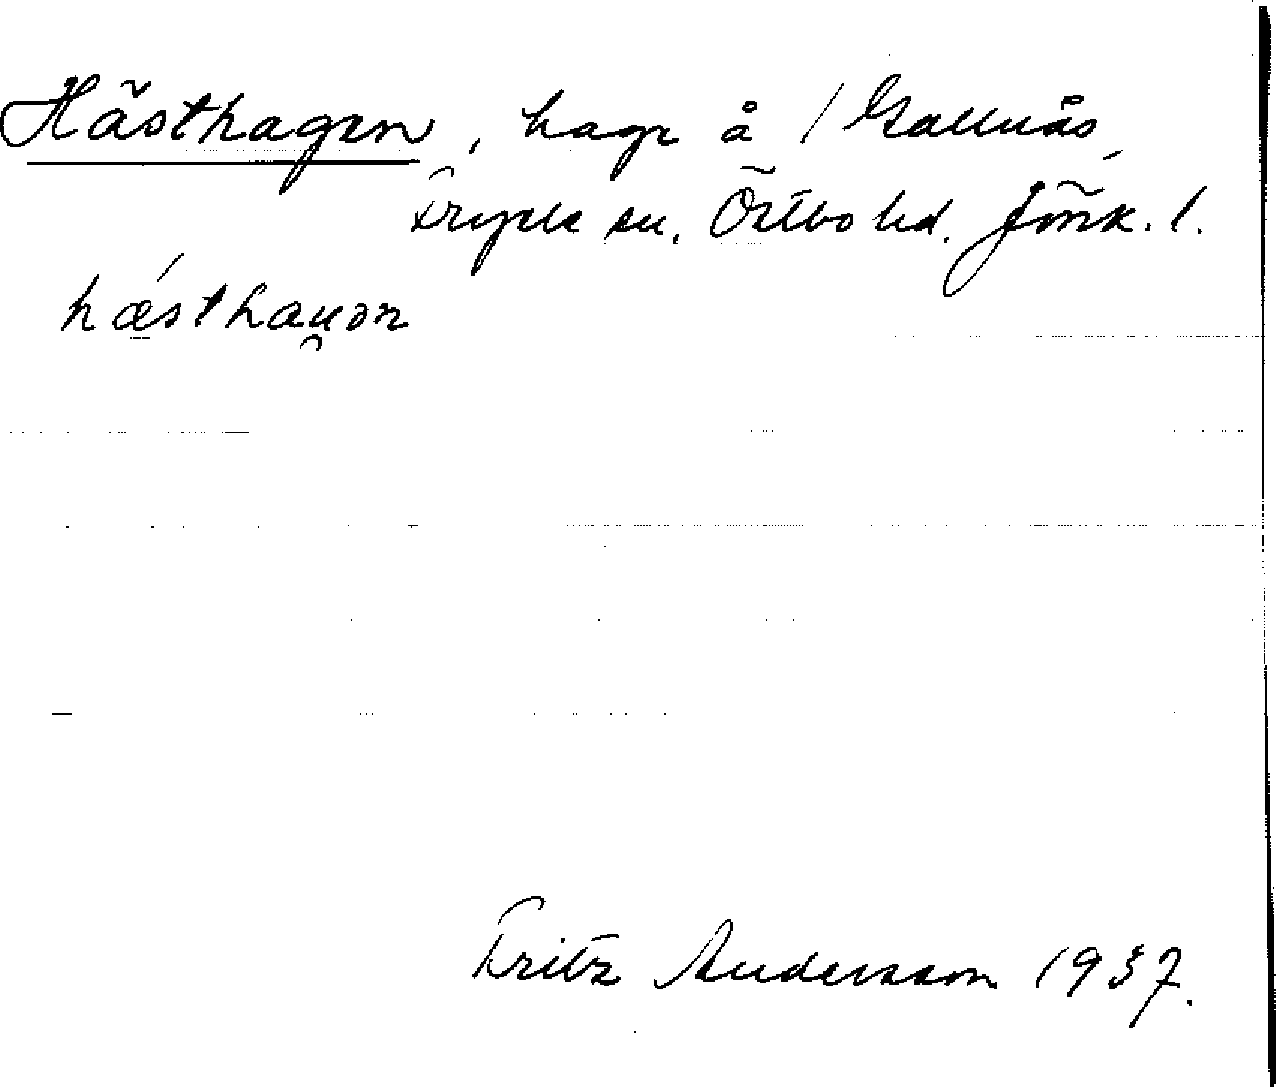 Hästhagen, hage å / Gallnås,
Fryele sn. Östbo hd. Jönk. l.
hästhau̯ən
Fritz Andersson 1937.